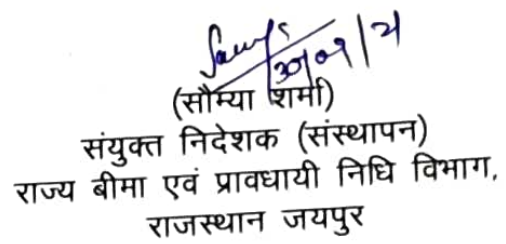 30/09/21
(सौम्या शर्मा)
संयुक्त निदेशक (संस्थापन)
राज्य बीमा एवं प्रावधायी निधि विभाग,
राजस्थान जयपुर